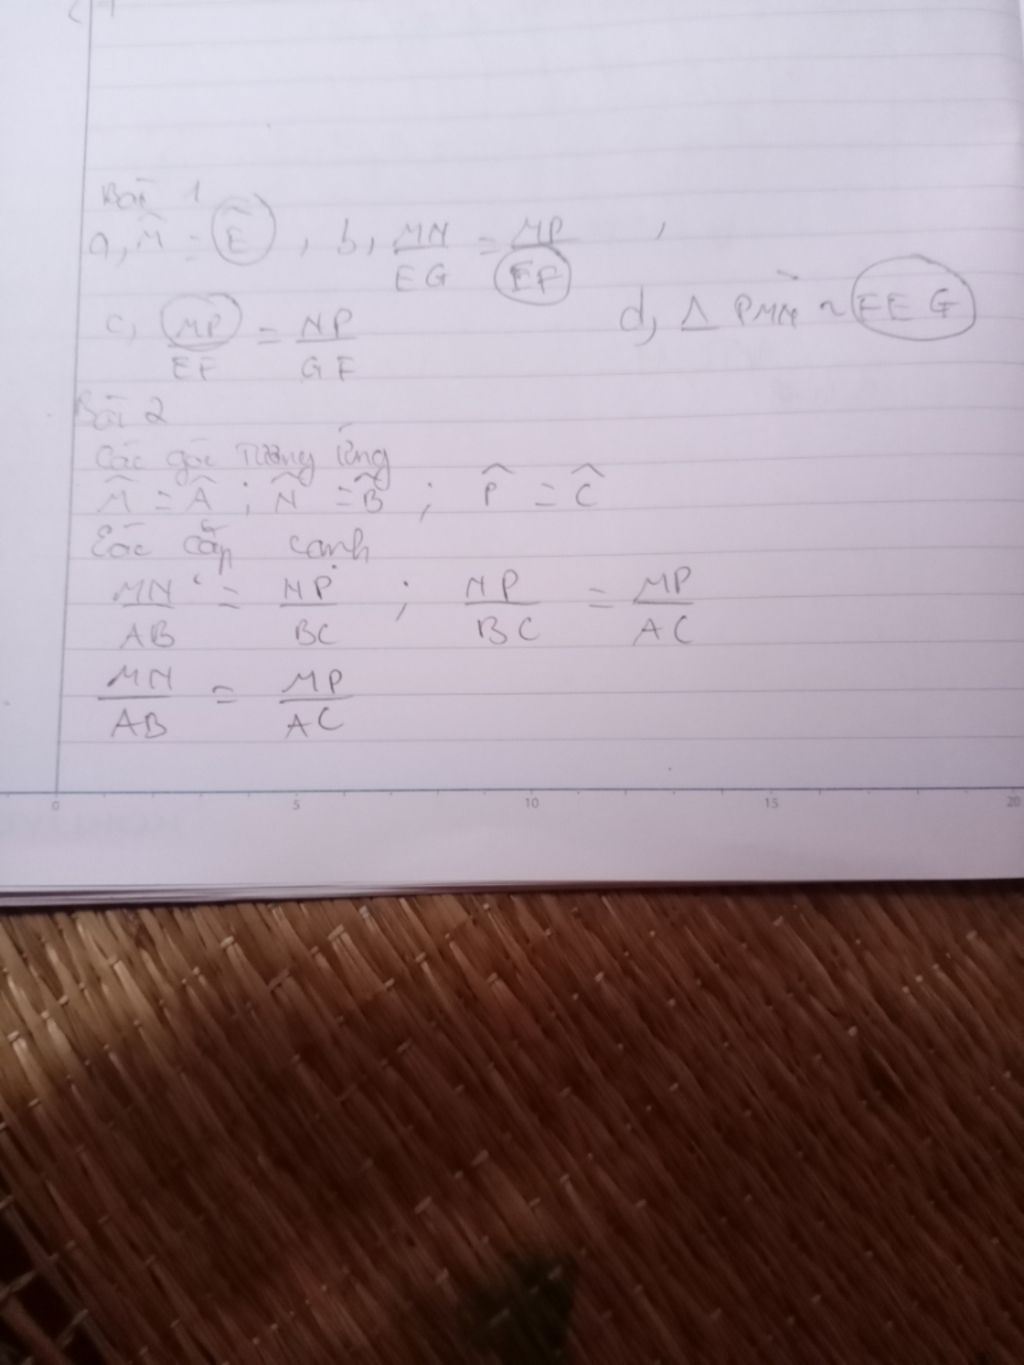 Bài 1
a, M̂ = Ê , b, MN/EG = MP/EF ,
c, MP/EF = NP/GF d, Δ PMN ~ FEG
Bài 2
Các góc tương ứng
M̂ = Â ; N̂ = B̂ ; P̂ = Ĉ
Các cặp cạnh
MN/AB = NP/BC ; NP/BC = MP/AC
MN/AB = MP/AC
0 5 10 15 20